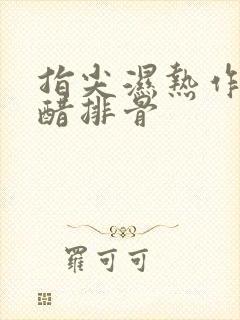 指尖濕熱作
醋排骨
羅可可